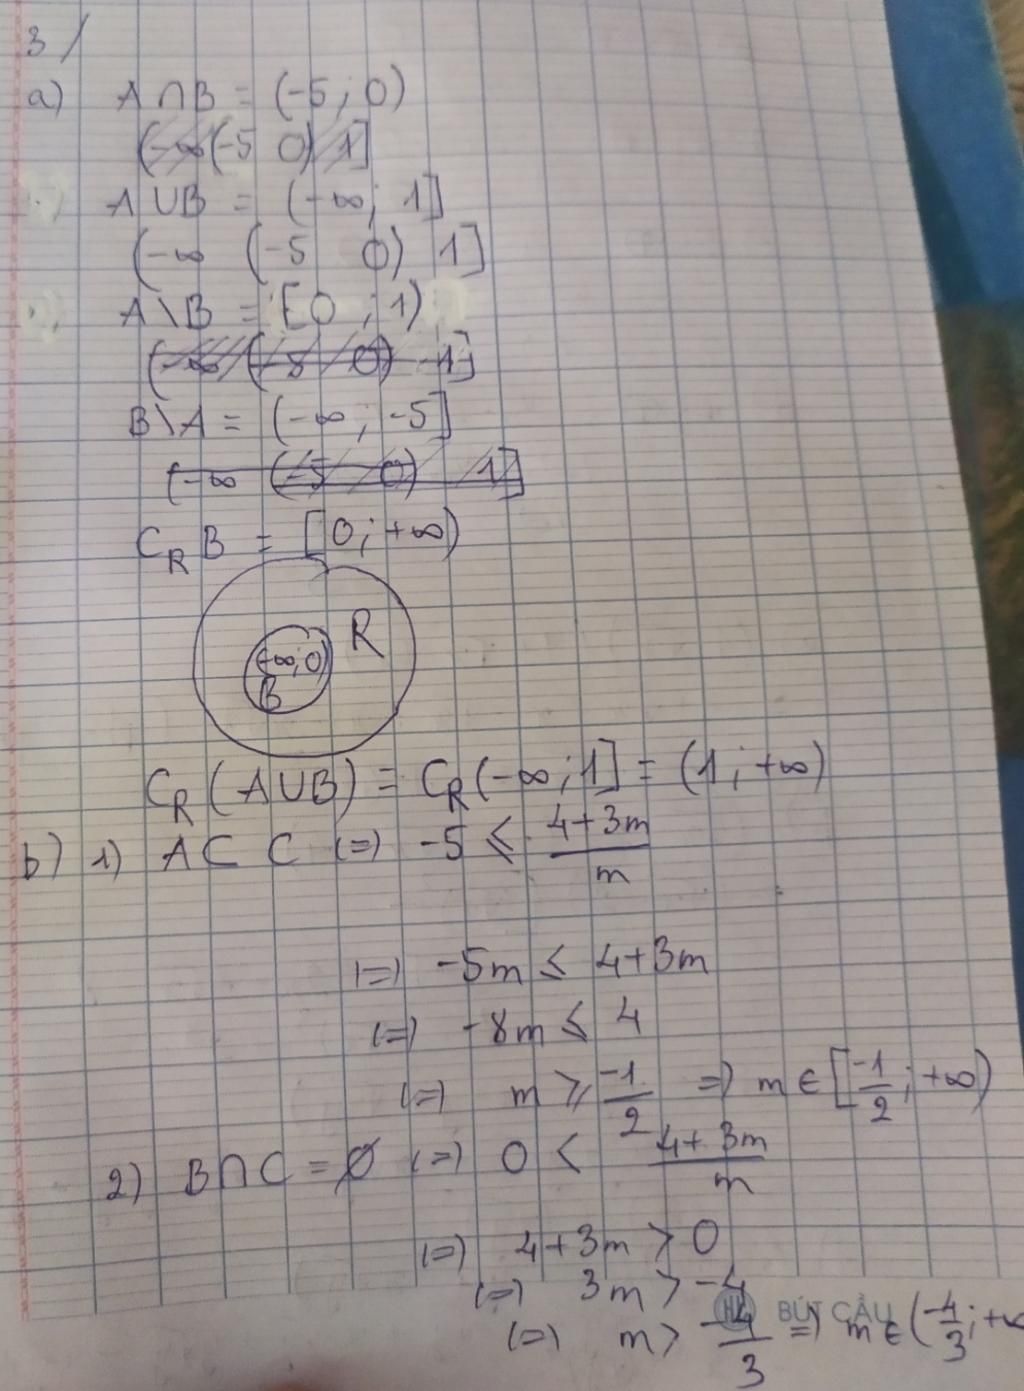 3/
a) A∩B = (-5; 0)
(-∞ (-5 0) 1]
A∪B = (-∞; 1]
(-∞ (-5 0) 1]
A\B = [0; 1)
(-∞ (-5 0) 1]
B\A = (-∞; -5]
(-∞ (-5 0) 1]
C_R B = [0; +∞)
R
(-∞; 0)
B
C_R (A∪B) = C_R (-∞; 1] = (1; +∞)
b) 1) A⊂C (=) -5 ≤ (4+3m)/m
(=) -5m ≤ 4+3m
(=) -8m ≤ 4
(=) m ≥ -1/2 =) m ∈ [-1/2; +∞)
2) B∩C = ∅ (=) 0 < (4+3m)/m
(=) 4+3m > 0
(=) 3m > -4
(=) m > -4/3 =) m ∈ (-4/3; +∞
BÚT CẦU